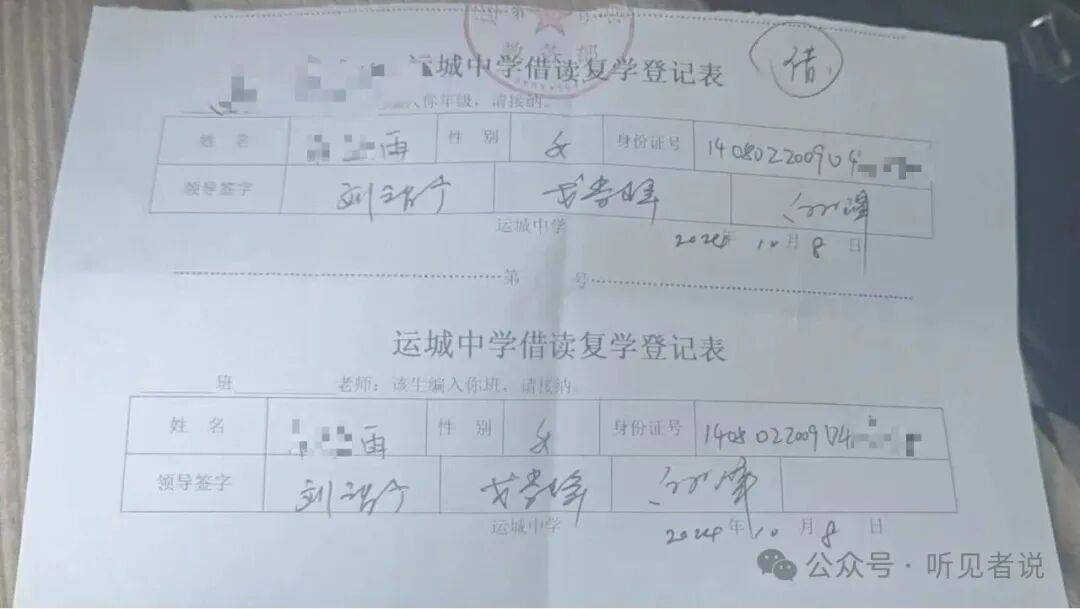 教务部
借
运城中学借读复学登记表
入你年级，请接纳。
姓 名 雨 性 别 女 身份证号 140802200904
领导签字
运城中学 2024年 10月 8日
第 号
运城中学借读复学登记表
班 老师：该生编入你班，请接纳。
姓 名 雨 性 别 女 身份证号 140802200904
领导签字
运城中学 2024年 10月 8日
公众号·听见者说